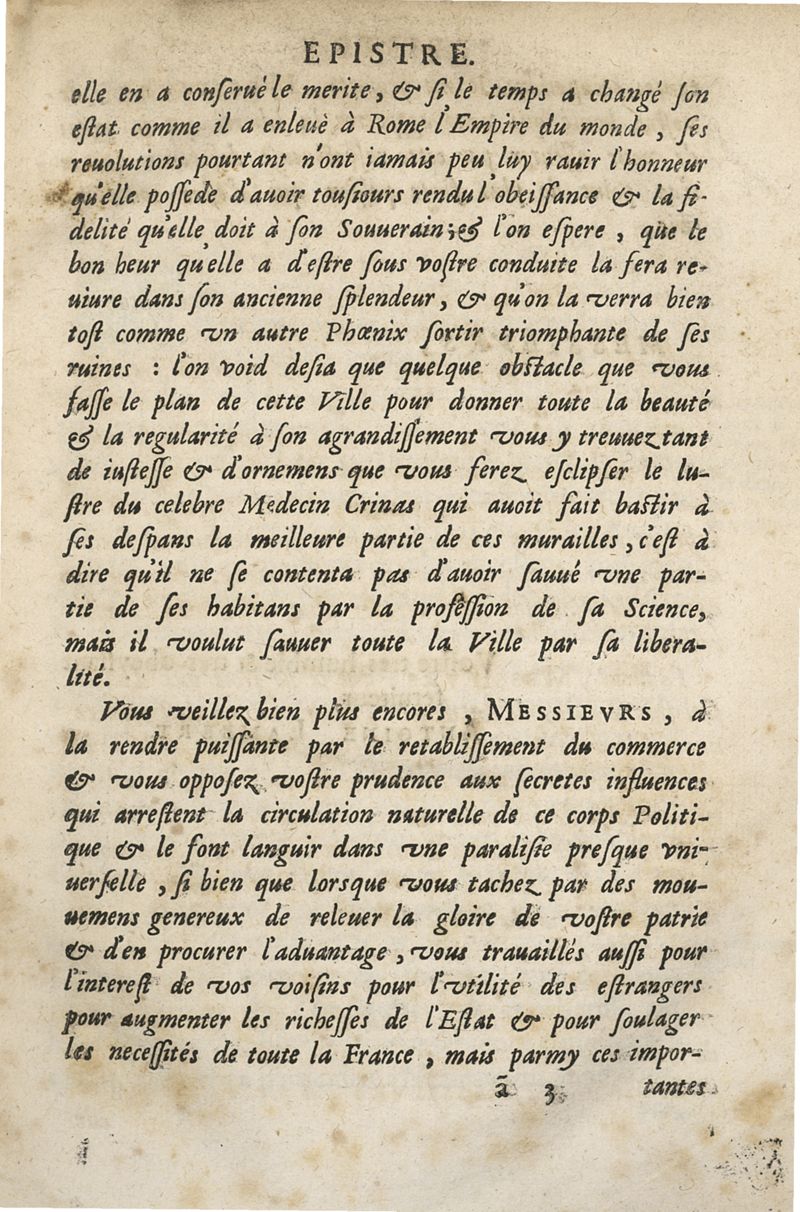 EPISTRE.
elle en a conſerué le merite, & ſi le temps a changé ſon
eſtat comme il a enleuè à Rome l'Empire du monde, ſes
reuolutions pourtant n'ont iamais peu luy rauir l'honneur
qu'elle poſſede d'auoir touſiours rendu l'obeiſſance & la fi-
delité qu'elle doit à ſon Souuerain; & l'on eſpere, que le
bon heur qu'elle a d'eſtre ſous voſtre conduite la fera re-
uiure dans ſon ancienne ſplendeur, & qu'on la verra bien
toſt comme vn autre Phœnix ſortir triomphante de ſes
ruines : l'on void deſia que quelque obſtacle que vous
faſſe le plan de cette Ville pour donner toute la beauté
& la regularité à ſon agrandiſſement vous y treuuez tant
de iuſteſſe & d'ornemens que vous ferez eſclipſer le lu-
ſtre du celebre Medecin Crinas qui auoit fait baſtir à
ſes deſpans la meilleure partie de ces murailles, c'eſt à
dire qu'il ne ſe contenta pas d'auoir ſauué vne par-
tie de ſes habitans par la profeſſion de ſa Science,
mais il voulut ſauuer toute la Ville par ſa libera-
lité.
Vous veillez bien plus encores, MESSIEVRS, à
la rendre puiſſante par le retabliſſement du commerce
& vous oppoſez voſtre prudence aux ſecretes influences
qui arreſtent la circulation naturelle de ce corps Politi-
que & le font languir dans vne paraliſie preſque vni-
uerſelle, ſi bien que lorsque vous tachez par des mou-
uemens genereux de releuer la gloire de voſtre patrie
& d'en procurer l'aduantage, vous trauaillés auſſi pour
l'intereſt de vos voiſins pour l'vtilité des eſtrangers
pour augmenter les richeſſes de l'Eſtat & pour ſoulager
les neceſſités de toute la France, mais parmy ces impor-
ã 3 tantes